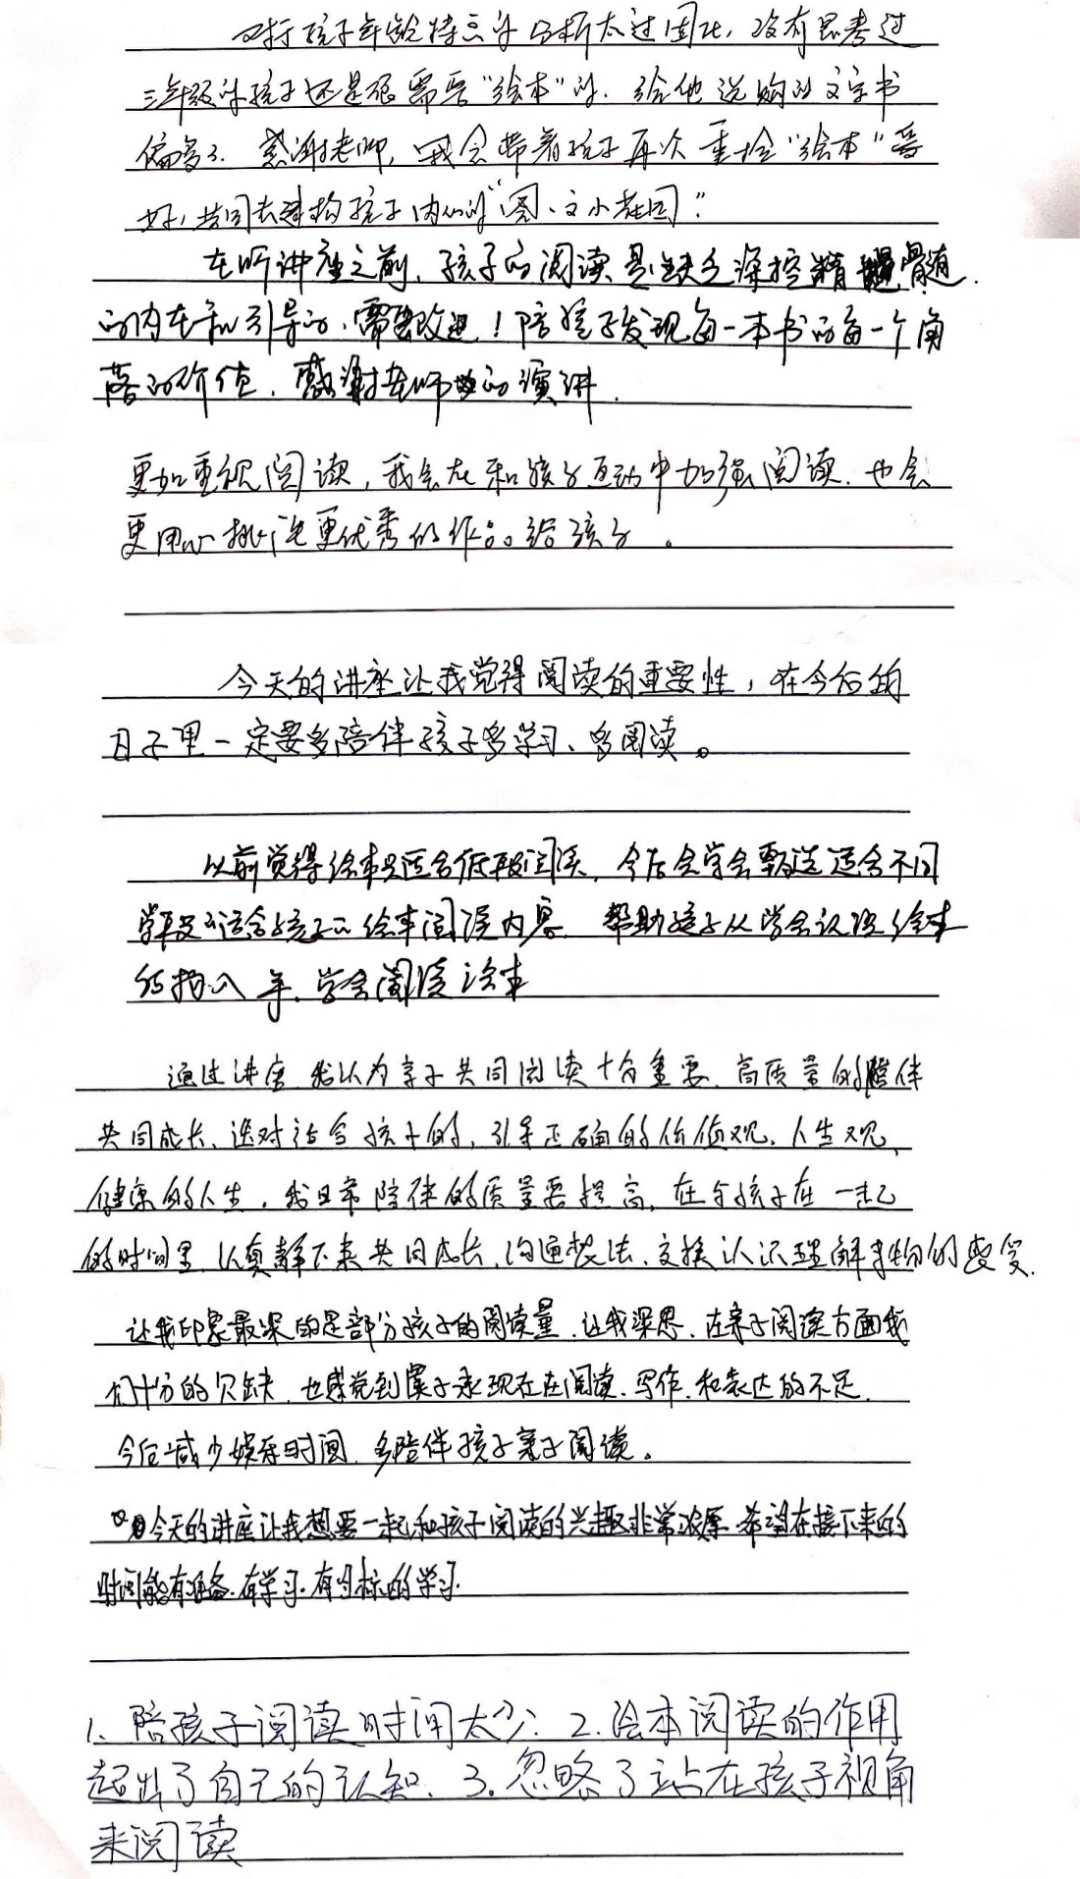 对于孩子年龄特点的分析太过固化,没有思考过
三年级的孩子还是很需要“绘本”的.给他选购的文字书
偏多了.感谢老师,我会带着孩子再次重拾“绘本”
好,共同去建构孩子内心的“图、文小花园”
在听讲座之前,孩子的阅读是缺乏深挖精 骨髓
的内在和引导的,需要改进!陪孩子发现每一本书的每一个角
落的价值.感谢老师的演讲.
更加重视阅读,我会在和孩子互动中加强阅读.也会
更用心挑选更优秀的作品给孩子。
今天的讲座让我觉得阅读的重要性,在今后的
日子里一定要多陪伴孩子多学习、多阅读。
以前觉得绘本只适合低年段阅读,今后会学会甄选适合不同
学段的适合孩子的绘本阅读内容,帮助孩子从学会认识绘本
的 入手,学会阅读绘本
通过讲座 我认为亲子共同阅读十分重要.高质量的陪伴
共同成长,选对适合孩子的,引导正确的价值观、人生观、
健康的人生.我日常陪伴的质量要提高,在与孩子在一起
的时间里,认真静下来共同成长,沟通想法,交换认识理解事物的感受.
让我印象最深的是部分孩子的阅读量,让我深思,在亲子阅读方面我
们十分的欠缺,也感觉到孩子 现在在阅读、写作、和表达的不足.
今后减少娱乐时间,多陪伴孩子亲子阅读。
今天的讲座让我想要一起和孩子阅读的兴趣非常浓厚.希望在接下来的
时间能有准备.有学习.有目标的学习.
1、陪孩子阅读时间太少; 2.绘本阅读的作用
超出了自己的认知、3。忽略了站在孩子视角
来阅读